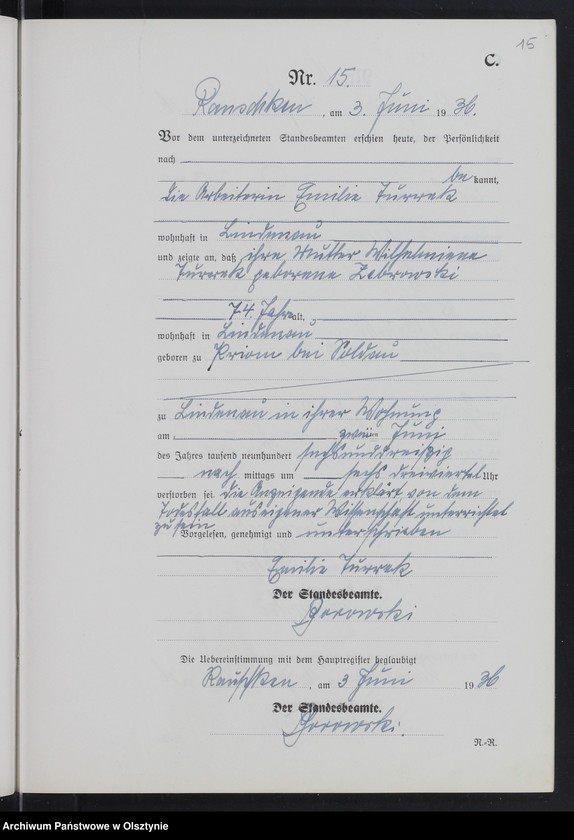 15
C.
Nr. 15.
Rauschken, am 3. Juni 1936.
Vor dem unterzeichneten Standesbeamten erschien heute, der Persönlichkeit
nach
be kannt,
die Arbeiterin Emilie Turrek
wohnhaft in Lindenau
und zeigte an, daß ihre Mutter Wilhelmiene
Turrek geborene Zebrowski
74 Jahre alt,
wohnhaft in Lindenau
geboren zu Priom bei Soldau
zu Lindenau in ihrer Wohnung
am zweiten Juni
des Jahres tausend neunhundert sechsunddreißig
nach mittags um sechs dreiviertel Uhr
verstorben sei. Die Anzeigende erklärt von dem
Todesfall aus eigener Wissenschaft unterrichtet
zu sein
Vorgelesen, genehmigt und unterschrieben
Emilie Turrek
Der Standesbeamte.
Borowski
Die Uebereinstimmung mit dem Hauptregister beglaubigt
Rauschken, am 3 Juni 1936
Der Standesbeamte.
Borowski.
R.-R.
Archiwum Państwowe w Olsztynie